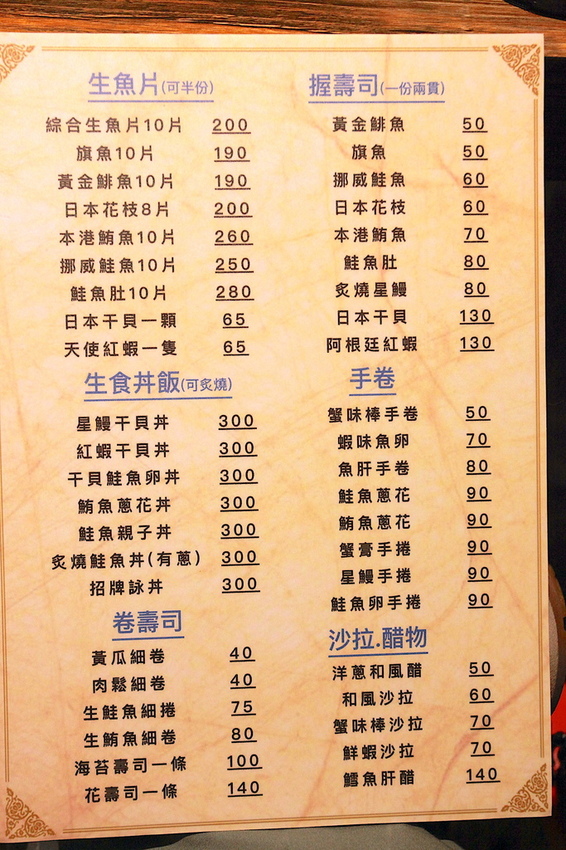 生魚片(可半份)
綜合生魚片10片 200
旗魚10片 190
黃金鯡魚10片 190
日本花枝8片 200
本港鮪魚10片 260
挪威鮭魚10片 250
鮭魚肚10片 280
日本干貝一顆 65
天使紅蝦一隻 65
生食丼飯(可炙燒)
星鰻干貝丼 300
紅蝦干貝丼 300
干貝鮭魚卵丼 300
鮪魚蔥花丼 300
鮭魚親子丼 300
炙燒鮭魚丼(有蔥) 300
招牌詠丼 300
卷壽司
黃瓜細卷 40
肉鬆細卷 40
生鮭魚細捲 75
生鮪魚細卷 80
海苔壽司一條 100
花壽司一條 140
握壽司(一份兩貫)
黃金鯡魚 50
旗魚 50
挪威鮭魚 60
日本花枝 60
本港鮪魚 70
鮭魚肚 80
炙燒星鰻 80
日本干貝 130
阿根廷紅蝦 130
手卷
蟹味棒手卷 50
蝦味魚卵 70
魚肝手卷 80
鮭魚蔥花 90
鮪魚蔥花 90
蟹膏手捲 90
星鰻手捲 90
鮭魚卵手捲 90
沙拉.醋物
洋蔥和風醋 50
和風沙拉 60
蟹味棒沙拉 70
鮮蝦沙拉 70
鱈魚肝醋 140